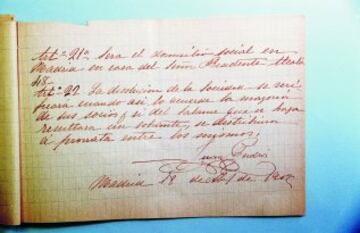 Artº 21º Sera el domicilio social en
Madrid en casa del Señor Presidente Alcalá
48
Artº 22 La disolucion de la Sociedad se veri
ficara cuando asi lo acuerde la mayoria
de sus socios y si del balance que se haga
resultara un sobrante, se distribuira
a prorrata entre los mismos.
Juan Padrós
Madrid 18 de de